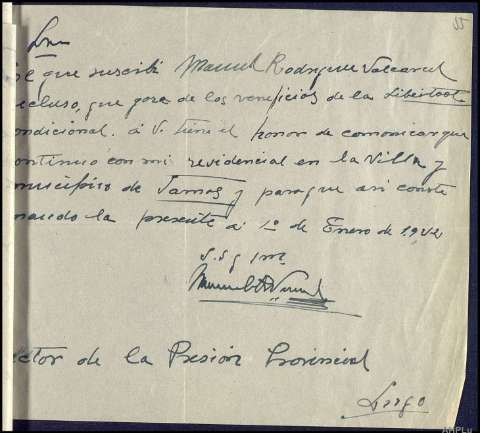 55
El que suscribe Manuel Rodrigue Valcarcel
recluso, que goza de los veneficios de la Libertat
condicional. á V. tiene el honor de comonicar que
continuo con mi revidencial en la Villa y
municipio de Samos y para que asi conste
mando la presente á 1º de Enero de 1942
S.S.
Director de la Presion Provincial
Lugo
AHPLu